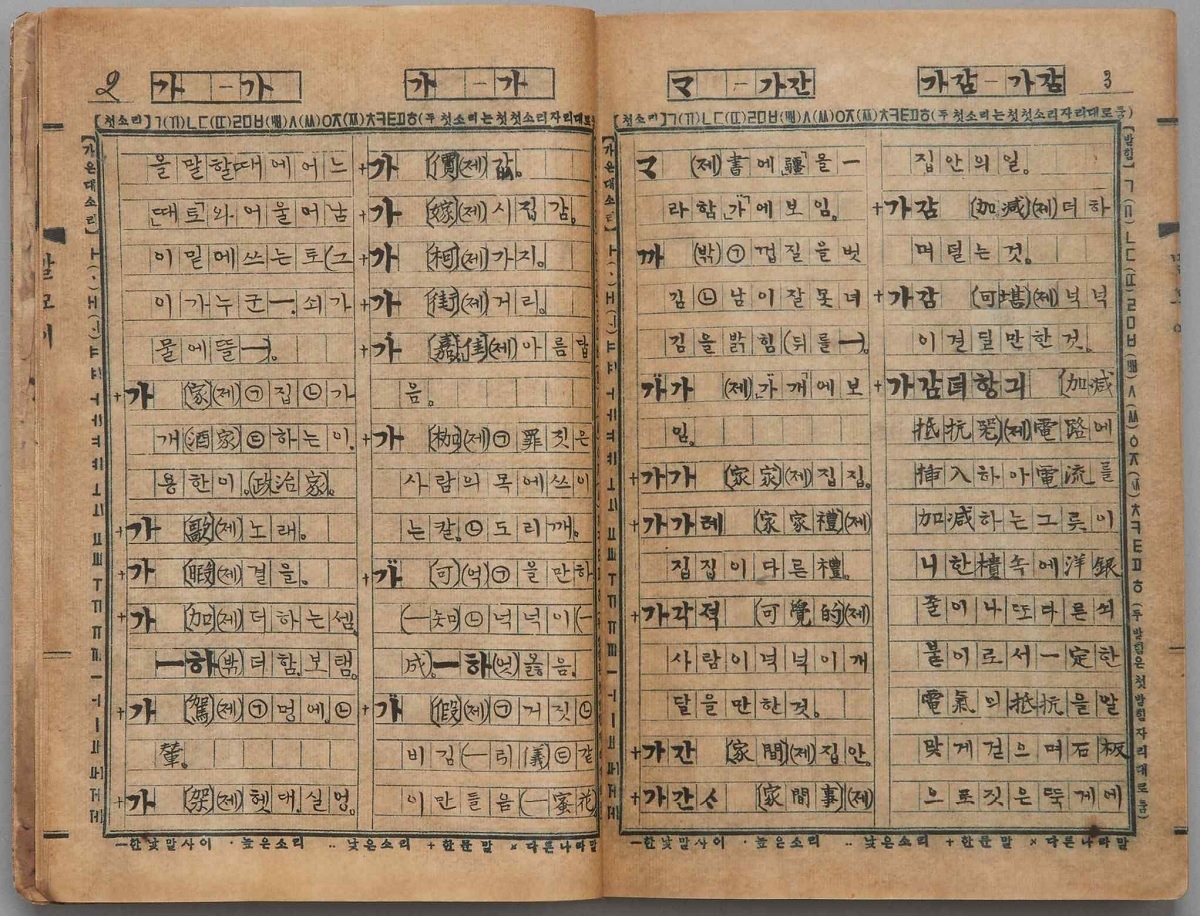 2
가 - 가
가 - 가
【첫소리】ㄱ(ㄲ)ㄴㄷ(ㄸ)ㄹㅁㅂ(ㅃ)ㅅ(ㅆ)ㅇㅈ(ㅉ)ㅊㅋㅌㅍㅎ(두첫소리는첫첫소리자리대로
【가온대소리】
을말할때에어느
「때트」와어울어남
이밑에쓰는토(그
이가누군ㅡ. 쇠가
물에뜰ㅡ)。
+가 (家)(제)㉠집㉡가
개(酒家)㉢하는이.
용한이。(政治家)。
+가 (歌)(제)노래。
+가 (暇)(제)결을。
+가 (加)(제)더하는셈。
ㅡ하(밖)더함.보탬。
+가 (駕)(제)㉠멍에。㉡
輦。
+가 (架)(제)헷대.실멍。
+가 (價)(제)값。
+가 (嫁)(제)시집감。
+가 (柯)(제)가지。
+가 (街)(제)거리。
+가 (嘉,佳)(제)아름답
음。
+가 (枷)(제)㉠罪짓은
사람의목에쓰이
는칼。㉡도리깨。
+가 (可)(억)㉠을만하
㉡넉넉이(ㅡ
成)。ㅡ하(엇)옳음。
+가 (假)(제)㉠거짓㉡
비김(ㅡ리儀)㉢같
이만들음(ㅡ蜜花
ㅡ한낱말사이 ·높은소리 ‥낮은소리 +한문말 ×다른나라말
マ - 가간
가감 - 가감
3
【첫소리】ㄱ(ㄲ)ㄴㄷ(ㄸ)ㄹㅁㅂ(ㅃ)ㅅ(ㅆ)ㅇㅈ(ㅉ)ㅊㅋㅌㅍㅎ(두첫소리는첫첫소리자리대로둠)
【가온대소리】
マ (제)書에「疆」을ㅡ
라함「가」에보임。
까 (밖)㉠껍질을벗
김㉡남이잘못녀
김을밝힘(뒤를ㅡ)。
가가 (제)「가개」에보
임。
+가가 (家家)(제)집집。
+가가례 (家家禮)(제)
집집이다른禮。
+가각적 (可覺的)(제)
사람이넉넉이깨
달을만한것。
+가간 (家間)(제)집안。
+가간ㅅ (家間事)(제)
집안의일。
+가감 (加減)(제)더하
며덜는것。
+가감 (可堪)(제)넉넉
이견딜만한것。
+가감뎌항긔 (加減
抵抗器)(제)電路에
揷入하아電流를
加減하는그릇이
니한樻속에洋銀
줄이나또다른쇠
붙이로서一定한
電氣의抵抗을말
맞게걷으며石板
으로짓은뚝게에
【받힘】ㄱ(ㄲ)ㄴㄷ(ㄸ)ㄹㅁㅂ(ㅃ)ㅅ(ㅆ)ㅇㅈ(ㅉ)ㅊㅋㅌㅍㅎ(두받힘은첫받힘자리대로둠)
ㅡ한낱말사이 ·높은소리 ‥낮은소리 +한문말 ×다른나라말